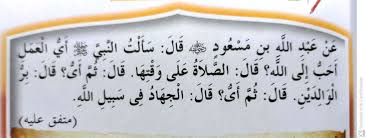 عَنْ عَبْدِ اللَّهِ بنِ مَسْعُودٍ ﷺ قَالَ: سَأَلْتُ النَّبِيَّ ﷺ أَيُّ الْعَمَلِ
أَحَبُّ إِلَى اللَّهِ؟ قَالَ: الصَّلَاةُ عَلَى وَقْتِهَا. قَالَ: ثُمَّ أَيُّ؟ قَالَ: بِرُّ
الْوَالِدَيْنِ. قَالَ: ثُمَّ أَيُّ؟ قَالَ: الْجِهَادُ فِي سَبِيلِ اللَّهِ.
(متفق عليه)